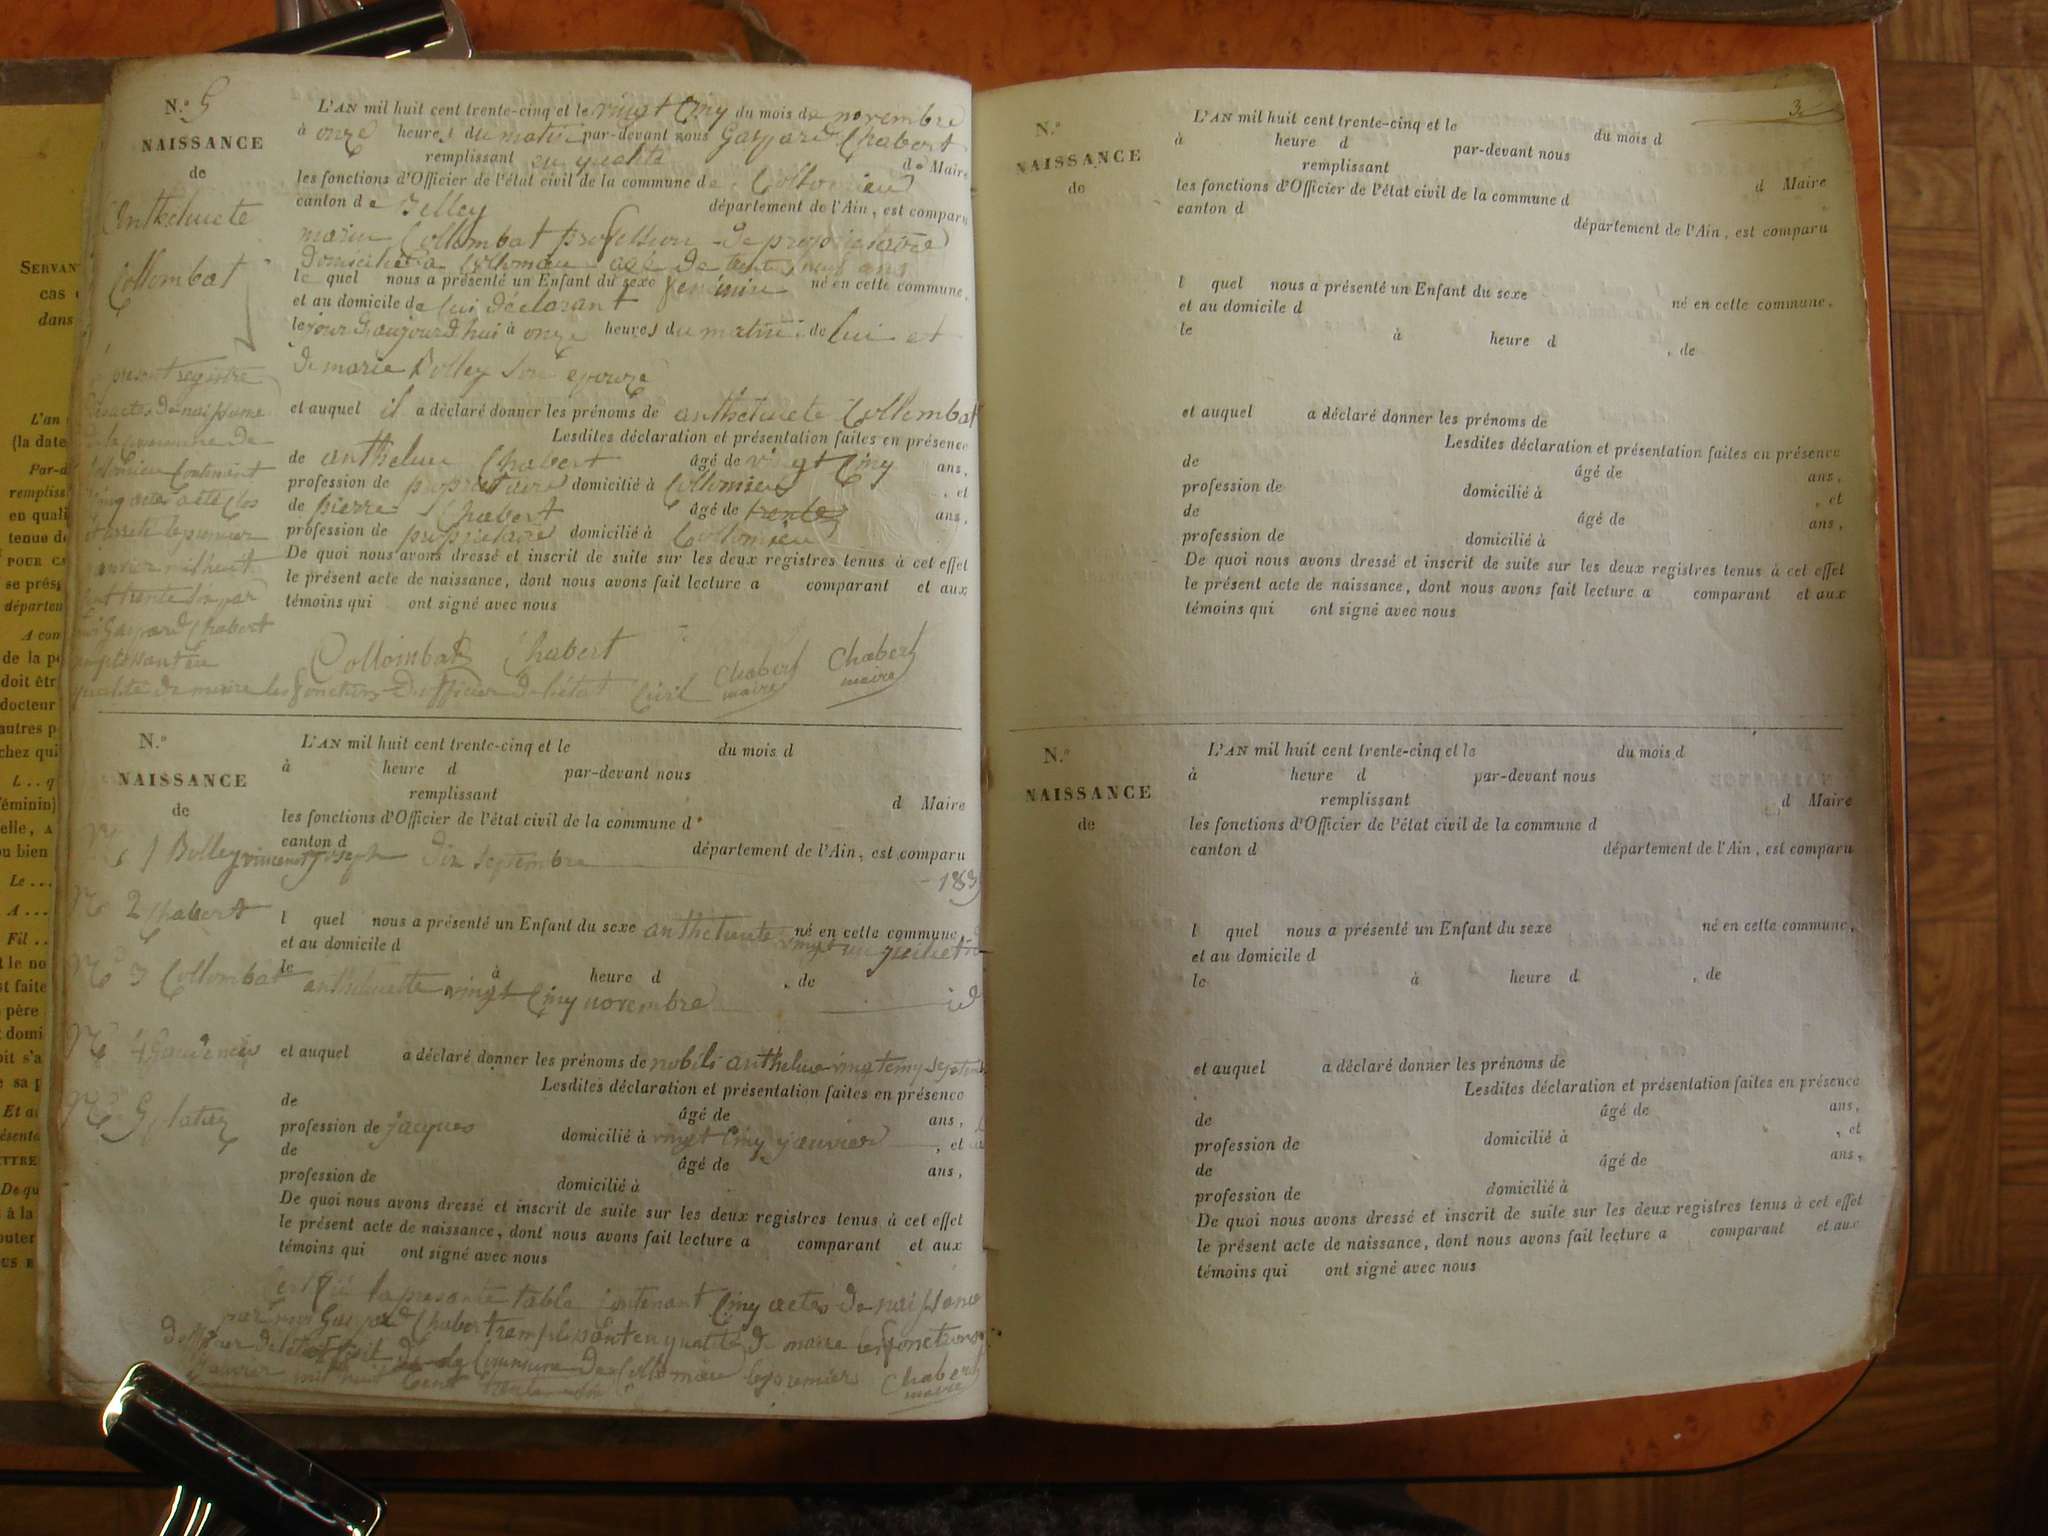 N.° 5
NAISSANCE
de
Anthelmete
Collombat
L'AN mil huit cent trente-cinq et le vingt cinq du mois de novembre
à onze heures du matin par-devant nous Gaspard Chabert
remplissant en qualité de Maire
les fonctions d'Officier de l'état civil de la commune de Collomieu
canton de Belley département de l'Ain, est comparu
marin Collombat profession de proprietaire
domicilié a Collomieu agé de trente neuf ans
le quel nous a présenté un Enfant du sexe feminin né en cette commune,
et au domicile de lui déclarant
le jour d'aujourd'hui à onze heures du matin de lui et
de marie Bolley son epouze
et auquel il a déclaré donner les prénoms de anthelmete Collombat
Lesdites déclaration et présentation faites en présence
de anthelme Chabert âgé de vingt cinq ans,
profession de proprietaire domicilié à Collomieu , et
de pierre Chabert âgé de trente ans,
profession de proprietaire domicilié à Collomieu
De quoi nous avons dressé et inscrit de suite sur les deux registres tenus à cet effet
le présent acte de naissance, dont nous avons fait lecture a comparant et aux
témoins qui ont signé avec nous
Collombat Chabert Chabert maire Chabert maire
present registre
des actes de naissance
de la commune de
Collomieu contenant
cinq actes a été clos
et arrêté le premier
janvier mil huit
cent trente six par
nous Gaspard Chabert
remplissant en
qualité de maire les fonctions d'officier de l'état Civil
N.°
NAISSANCE
de
L'AN mil huit cent trente-cinq et le du mois d
à heure d par-devant nous
remplissant d Maire
les fonctions d'Officier de l'état civil de la commune d
canton d département de l'Ain, est comparu
N° 1 Bolley vincent joseph dix septembre 183
N° 2 Chabert
l quel nous a présenté un Enfant du sexe anthelmete né en cette commune,
et au domicile d vingt un juillet
N° 3 Collombat anthelmette vingt cinq novembre id
le à heure d , de
N° 4
et auquel a déclaré donner les prénoms de anthelme vingt cinq septem
Lesdites déclaration et présentation faites en présence
N° 5
de âgé de ans,
profession de jacques domicilié à vingt cinq janvier , et
de âgé de ans,
profession de domicilié à
De quoi nous avons dressé et inscrit de suite sur les deux registres tenus à cet effet
le présent acte de naissance, dont nous avons fait lecture a comparant et aux
témoins qui ont signé avec nous
certifié la presente table contenant cinq actes de naissance
par nous Gaspard Chabert remplissant en qualité de maire les fonctions
d'officier de l'état civil de la Commune de Collomieu le premier
janvier mil huit cent trente six Chabert maire
3
N.°
NAISSANCE
de
L'AN mil huit cent trente-cinq et le du mois d
à heure d par-devant nous
remplissant d Maire
les fonctions d'Officier de l'état civil de la commune d
canton d département de l'Ain, est comparu
l quel nous a présenté un Enfant du sexe né en cette commune,
et au domicile d
le à heure d , de
et auquel a déclaré donner les prénoms de
Lesdites déclaration et présentation faites en présence
de âgé de ans,
profession de domicilié à , et
de âgé de ans,
profession de domicilié à
De quoi nous avons dressé et inscrit de suite sur les deux registres tenus à cet effet
le présent acte de naissance, dont nous avons fait lecture a comparant et aux
témoins qui ont signé avec nous
N.°
NAISSANCE
de
L'AN mil huit cent trente-cinq et le du mois d
à heure d par-devant nous
remplissant d Maire
les fonctions d'Officier de l'état civil de la commune d
canton d département de l'Ain, est comparu
l quel nous a présenté un Enfant du sexe né en cette commune,
et au domicile d
le à heure d , de
et auquel a déclaré donner les prénoms de
Lesdites déclaration et présentation faites en présence
de âgé de ans,
profession de domicilié à , et
de âgé de ans,
profession de domicilié à
De quoi nous avons dressé et inscrit de suite sur les deux registres tenus à cet effet
le présent acte de naissance, dont nous avons fait lecture a comparant et aux
témoins qui ont signé avec nous